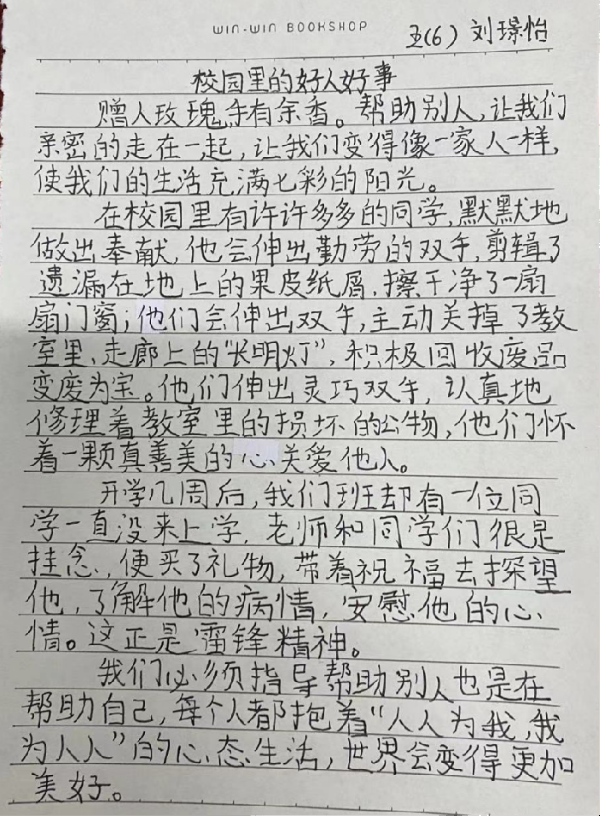 WIN-WIN BOOKSHOP
五(6) 刘璟怡
校园里的好人好事
赠人玫瑰手有余香。帮助别人,让我们
亲密的走在一起,让我们变得像一家人一样,
使我们的生活充满七彩的阳光。
在校园里有许许多多的同学,默默地
做出奉献,他会伸出勤劳的双手,剪辑了
遗漏在地上的果皮纸屑,擦干净了一扇
扇门窗;他们会伸出双手,主动关掉了教
室里、走廊上的“长明灯”,积极回收废品
变废为宝。他们伸出灵巧双手,认真地
修理着教室里的损坏的公物,他们怀
着一颗真善美的心关爱他人。
开学几周后,我们班却有一位同
学一直没来上学,老师和同学们很是
挂念,便买了礼物,带着祝福去探望
他,了解他的病情,安慰他的心
情。这正是雷锋精神。
我们必须指导帮助别人也是在
帮助自己,每个人都抱着“人人为我,我
为人人”的心态生活,世界会变得更加
美好。